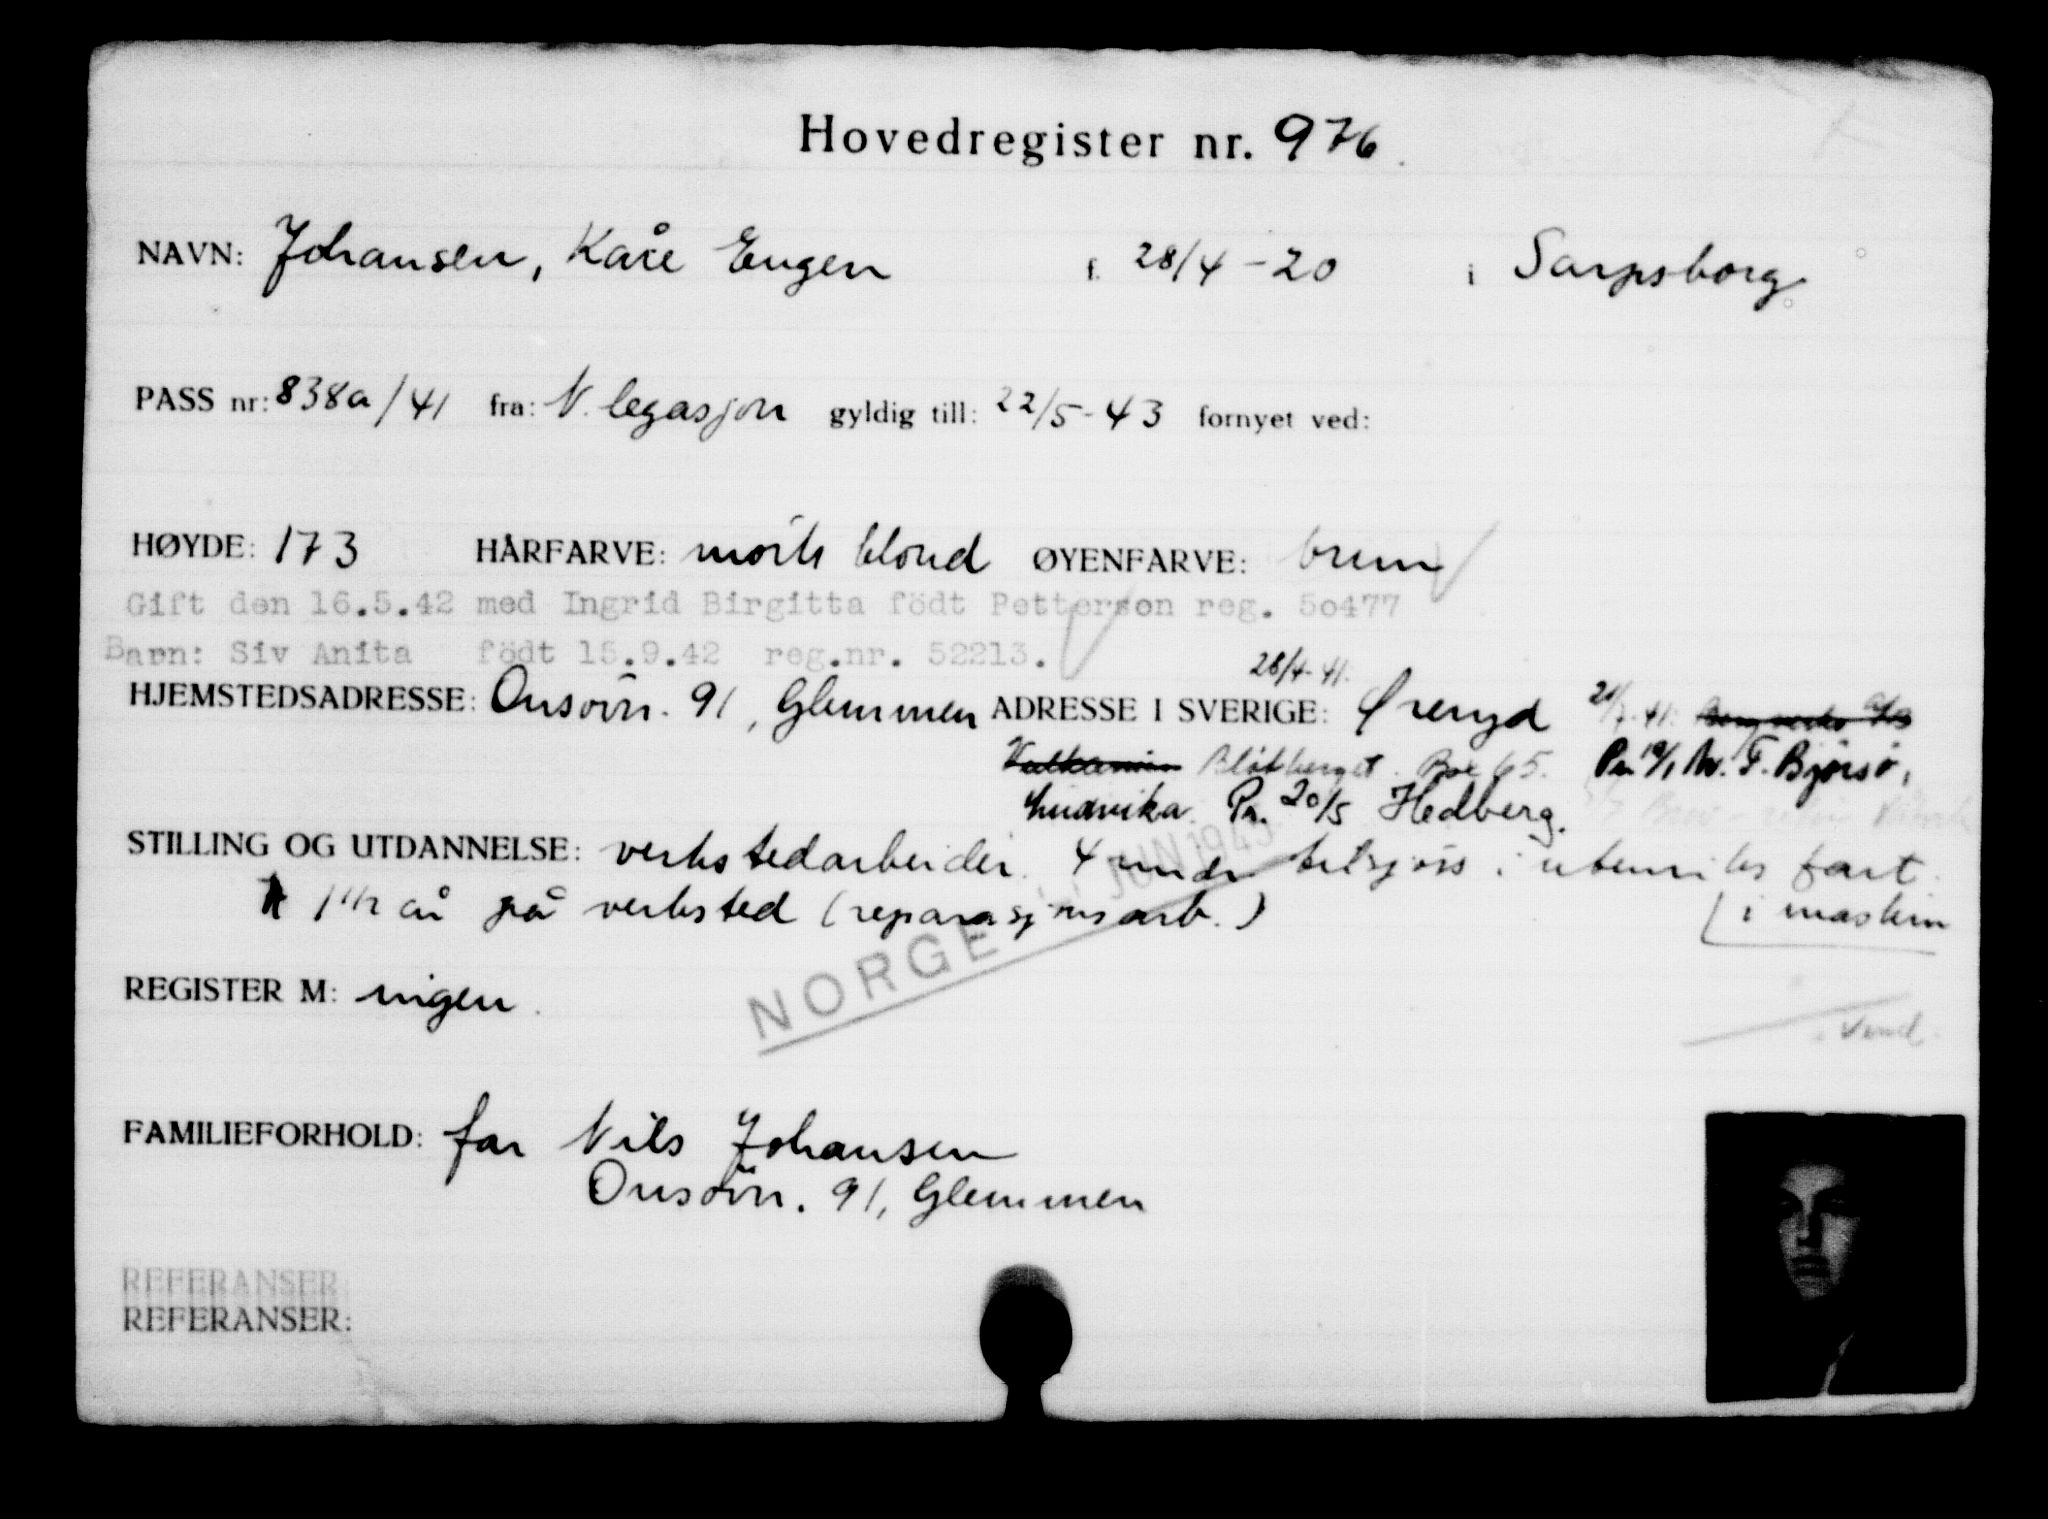 Hovedregister nr. 976
NAVN: Johansen, Kåre Eugen f. 28/4-20 i Sarpsborg
PASS nr: 838a/41 fra: N. legasjon gyldig till: 22/5-43 fornyet ved:
HØYDE: 173 HÅRFARVE: mørk blond ØYENFARVE: brun
Gift den 16.5.42 med Ingrid Birgitta födt Petterson reg. 50477
Barn: Siv Anita födt 15.9.42 reg.nr. 52213.
28/4-41.
HJEMSTEDSADRESSE: Onsøvn. 91, Glemmen ADRESSE I SVERIGE: Øreryd 21/7-41:
Blötberget. Box 65. Pr. 19/1 Av. F. Björsö,
Ludvika. Pr. 20/5 Hedberg.
STILLING OG UTDANNELSE: verkstedarbeider. 4 mndr. tilsjøss i utenriks fart.
1 1/2 år på verksted (reparasjonsarb.) i maskin
NORGE JUN 1945
REGISTER M: ingen.
Vend.
FAMILIEFORHOLD: far Nils Johansen
Onsøvn. 91, Glemmen
REFERANSER
REFERANSER: